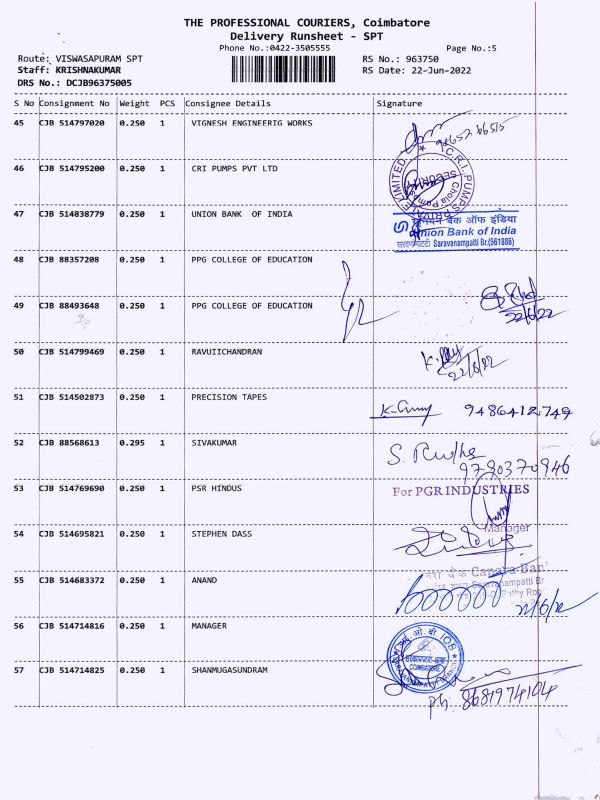 THE PROFESSIONAL COURIERS, Coimbatore
Delivery Runsheet - SPT
Phone No.:0422-3505555 Page No.:5
Route: VISWASAPURAM SPT RS No.: 963750
Staff: KRISHNAKUMAR RS Date: 22-Jun-2022
DRS No.: DCJB96375005
S No Consignment No Weight PCS Consignee Details Signature
45 CJB 514797020 0.250 1 VIGNESH ENGINEERIG WORKS
46 CJB 514795200 0.250 1 CRI PUMPS PVT LTD
C.R.I. PUMPS PRIVATE LIMITED
SECURITY
47 CJB 514838779 0.250 1 UNION BANK OF INDIA
यूनियन बैंक ऑफ इंडिया
Union Bank of India
Saravanampatti Br.(561886)
48 CJB 88357208 0.250 1 PPG COLLEGE OF EDUCATION
49 CJB 88493648 0.250 1 PPG COLLEGE OF EDUCATION
22/6/22
50 CJB 514799469 0.250 1 RAVUIICHANDRAN
22/6/22
51 CJB 514502873 0.250 1 PRECISION TAPES
9486412749
52 CJB 88568613 0.295 1 SIVAKUMAR
9790370946
53 CJB 514769690 0.250 1 PSR HINDUS
For PGR INDUSTRIES
Manager
54 CJB 514695821 0.250 1 STEPHEN DASS
55 CJB 514683372 0.250 1 ANAND
Canara Ban
Saravanampatti Br
22/6/22
56 CJB 514714816 0.250 1 MANAGER
IOB
COIMBATORE
57 CJB 514714825 0.250 1 SHANMUGASUNDRAM
ph: 8681974104